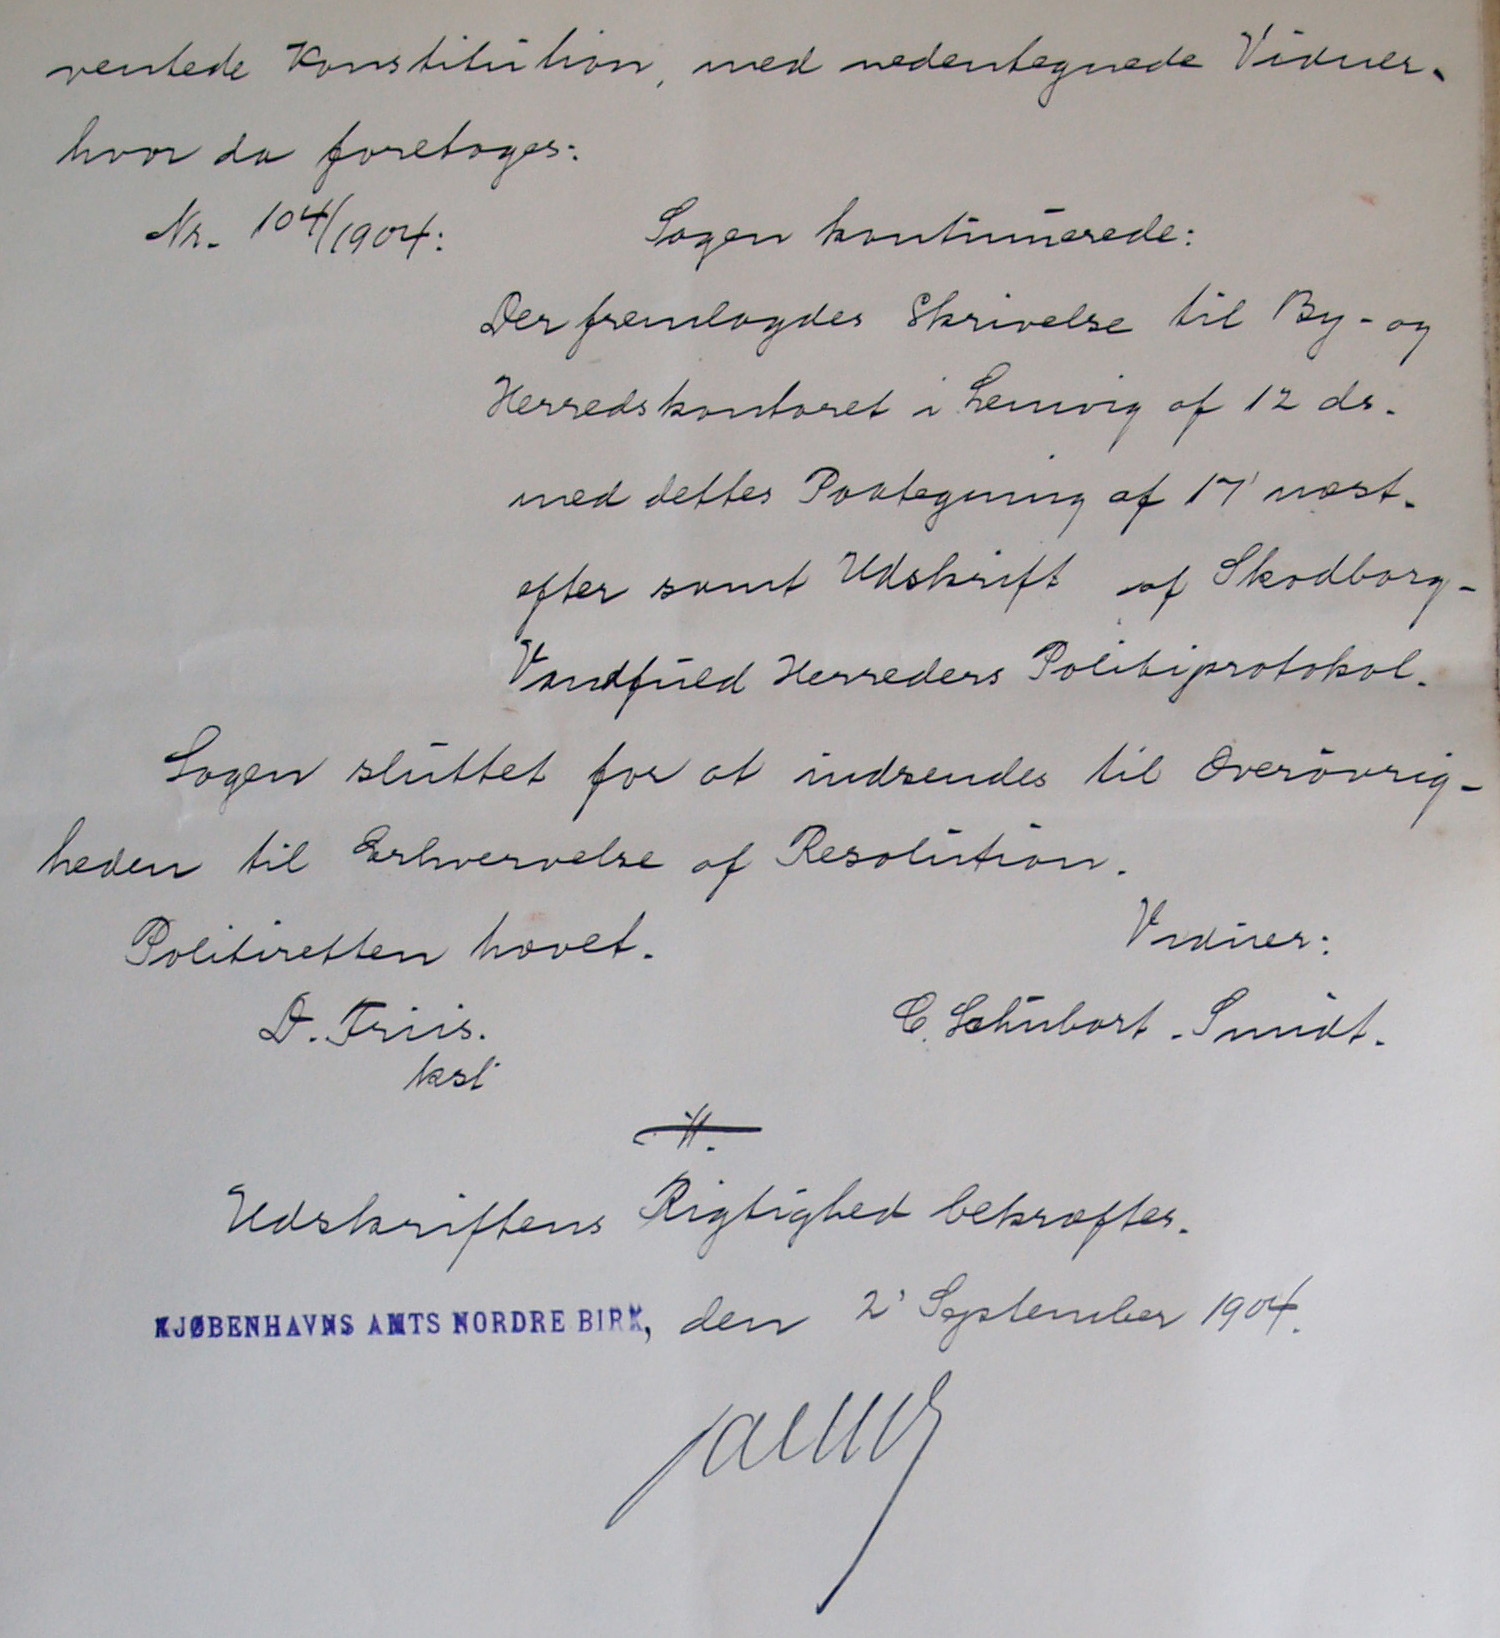 ventede Konstitution, med nedentegnede Vidner.
hvor da foretoges:
Nr. 104/1904: Sagen kontinuerede:
Der fremlagdes Skrivelse til By- og
Herredskontoret i Lemvig af 12 ds.
med dettes Paategning af 17' næst-
efter samt Udskrift af Skodborg-
Vandfuld Herreders Politiprotokol.
Sagen sluttet for at indsendes til Overøvrig-
heden til Erhvervelse af Resolution.
Politiretten hævet.
Vidner:
D. Friis. C. Schubart. Smidt.
kst
Udskriftens Rigtighed bekræftes.
KJØBENHAVNS AMTS NORDRE BIRK, den 2' September 1904.